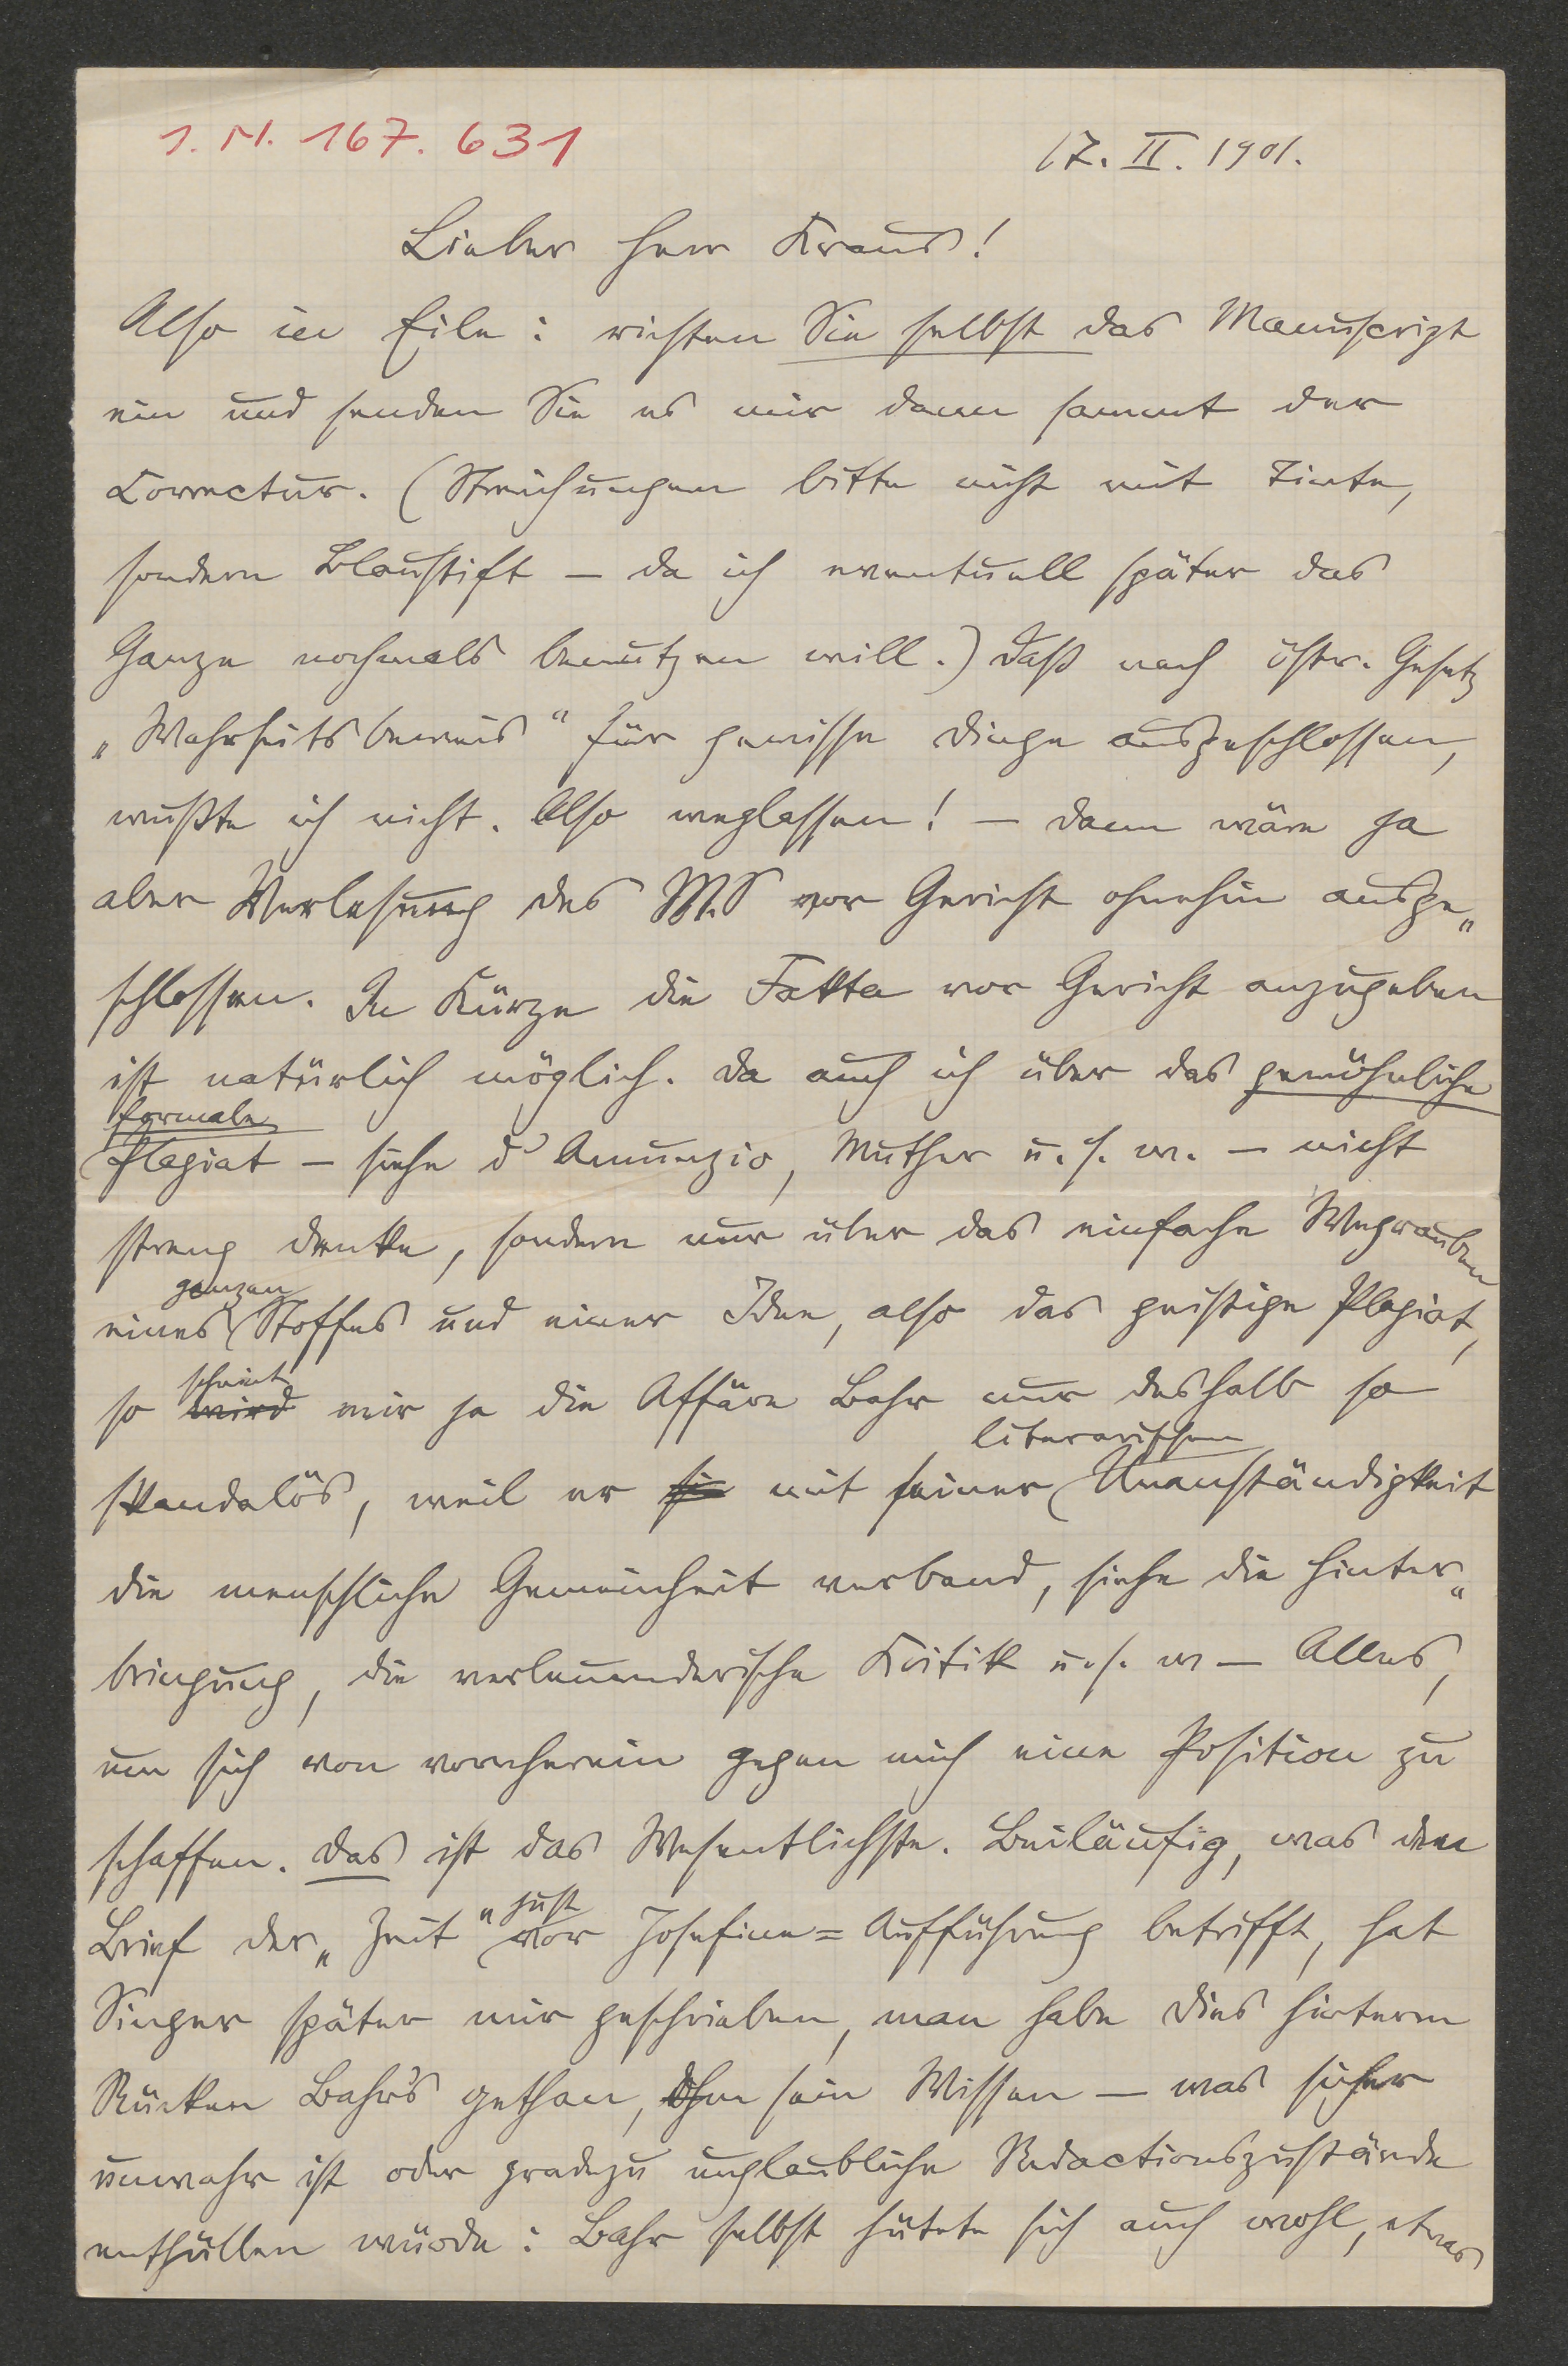 I. N. 167.631
17. II. 1901.
Lieber Herr Kraus!
Also in Eile: richten Sie selbst das Manuscript
ein und senden Sie es mir dann sammt der
Correctur. (Streichungen bitte nicht mit Tinte,
sondern Blaustift — da ich eventuell später das
Ganze nochmals benutzen will.) Daß nach östr. Gesetz
„Wahrheitsbeweis" für gewisse Dinge ausgeschlossen,
wußte ich nicht. Also weglassen! — dann wäre ja
aber Verlesung des MS vor Gericht ohnehin ausge„
schlossen. In Kürze die Fakta vor Gericht anzugeben
ist natürlich möglich. Da auch ich über das gewöhnliche
formale
Plagiat — siehe d'Annunzio, Muther u. s. w. — nicht
streng denke, sondern nur über das einfache Wegrauben
ganzen
eines Stoffes und einer Idee, also das geistige Plagiat,
scheint
so wird mir ja die Affäre Bahr nur deshalb so
literarischen
skandalös, weil er sie mit seiner Unanständigkeit
die menschliche Gemeinheit verband, siehe die Hinter„
bringung, die verleumderische Kritik u. s. w — Alles,
um sich von vornherein gegen mich eine Position zu
schaffen. Das ist das Wesentlichste. Beiläufig, was den
just
Brief der „Zeit" vor Josefine=Aufführung betrifft, hat
Singer später mir geschrieben, man habe dies hinterm
Rücken Bahr's gethan, ohne sein Wissen — was sicher
unwahr ist oder gradezu unglaubliche Redactionszustände
enthüllen würde: Bahr selbst hütete sich auch wohl, etwas